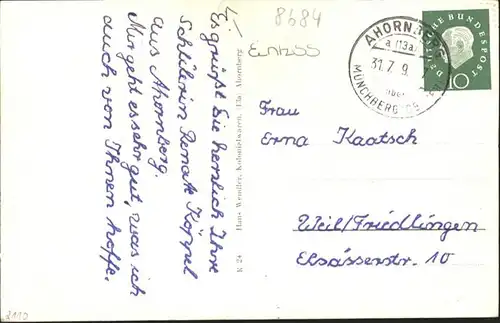 8684
Eintoss
Es grüßt Sie herzlich Ihre
Schülerin Renate Köppel
aus Ahornberg.
Mir geht es sehr gut, was ich
auch von Ihnen hoffe.
K 24 Hans Wendler, Kolonialwaren, Tha. Ahornberg
AHORNBERG
a (13a)
31.7.9.
über
MÜNCHBERG
DEUTSCHE BUNDESPOST
10
Frau
Erna Kaatsch
Weil/Friedlingen
Elsässerstr. 10
2110